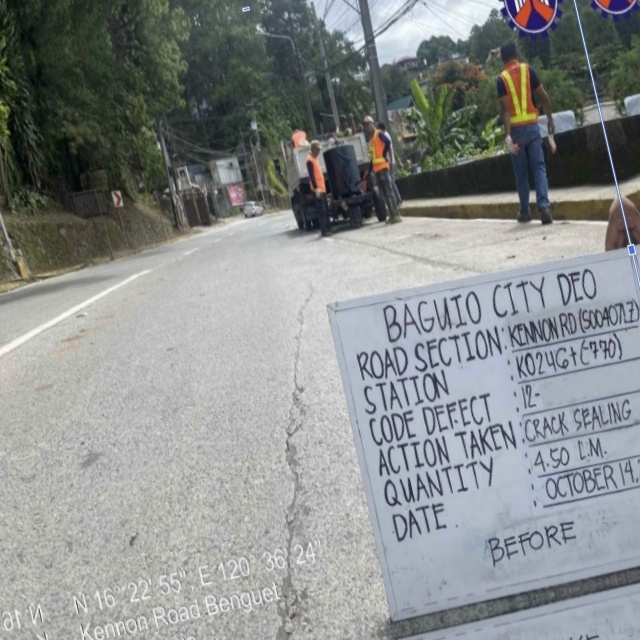 BAGUIO CITY DEO
ROAD SECTION: KENNON RD (S00407LZ)
STATION K0246+(-770)
CODE DEFECT 12-
ACTION TAKEN CRACK SEALING
QUANTITY 4.50 L.M.
DATE. OCTOBER 14,
BEFORE
N 16° 22' 55" E 120° 36' 24"
Kennon Road Benguet